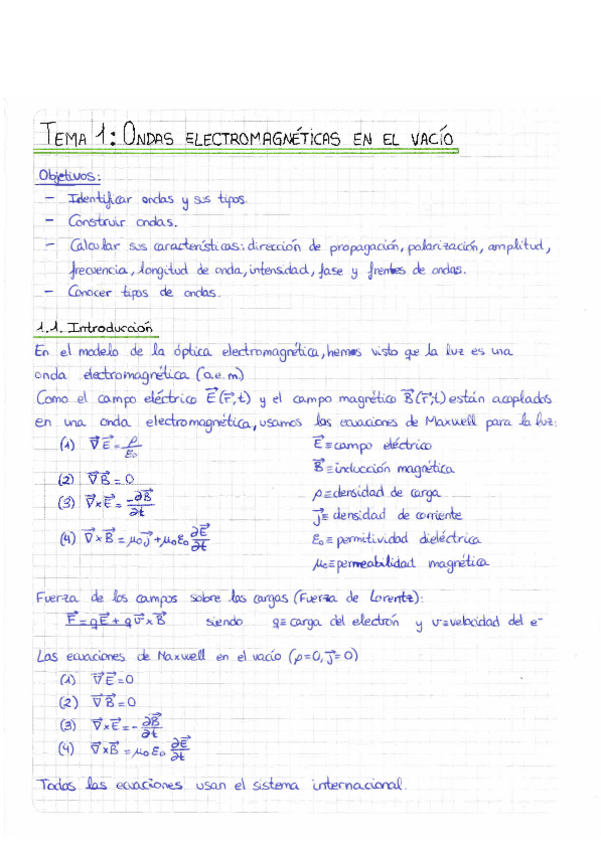 TEMA 1: ONDAS ELECTROMAGNÉTICAS EN EL VACÍO
Objetivos:
- Identificar ondas y sus tipos.
- Construir ondas.
- Calcular sus características: dirección de propagación, polarización, amplitud,
frecuencia, longitud de onda, intensidad, fase y frentes de ondas.
- Conocer tipos de ondas.
1.1. Introducción
En el modelo de la óptica electromagnética, hemos visto que la luz es una
onda electromagnética (o.e.m)
Como el campo eléctrico E⃗(r⃗,t) y el campo magnético B⃗(r⃗,t) están acoplados
en una onda electromagnética, usamos las ecuaciones de Maxwell para la luz:
(1) ∇⃗E⃗ = ρ/ε₀
E⃗ ≡ campo eléctrico
B⃗ ≡ inducción magnética
(2) ∇⃗B⃗ = 0
ρ ≡ densidad de carga
(3) ∇⃗×E⃗ = -∂B⃗/∂t
j⃗ ≡ densidad de corriente
(4) ∇⃗×B⃗ = μ₀j⃗ + μ₀ε₀ ∂E⃗/∂t
ε₀ ≡ permitividad dieléctrica
μ₀ ≡ permeabilidad magnética
Fuerza de los campos sobre las cargas (Fuerza de Lorentz):
F⃗ = qE⃗ + qv⃗×B⃗ siendo q ≡ carga del electrón y v ≡ velocidad del e⁻
Las ecuaciones de Maxwell en el vacío (ρ=0, j⃗=0)
(1) ∇⃗E⃗ = 0
(2) ∇⃗B⃗ = 0
(3) ∇⃗×E⃗ = -∂B⃗/∂t
(4) ∇⃗×B⃗ = μ₀ε₀ ∂E⃗/∂t
Todas las ecuaciones usan el sistema internacional.